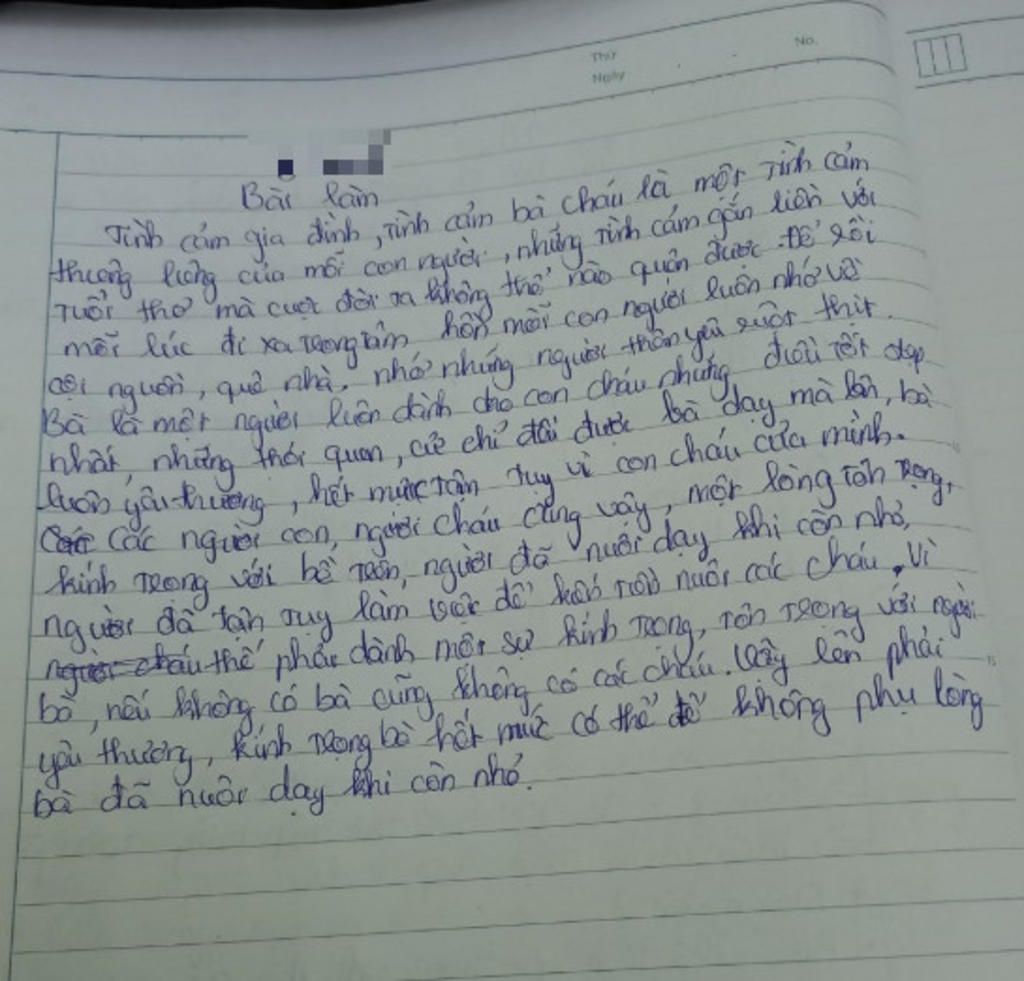 Thứ
Ngày
No.
Bài làm
Tình cảm gia đình, tình cảm bà cháu là một tình cảm
thương liêng của mỗi con người, những tình cảm gắn liền với
tuổi thơ mà cuộc đời ta không thể nào quên được. Để rồi
mỗi lúc đi xa trong tâm hồn mỗi con người luôn nhớ về
cội nguồn, quê nhà, nhớ những người thân yêu ruột thịt.
Bà là một người luôn dành cho con cháu những điều tốt đẹp
nhất, những thói quen, cử chỉ đều được bà dạy mà lên, bà
luôn yêu thương, hết mực tận tụy vì con cháu của mình.
Các người con, người cháu cũng vậy, một lòng tôn trọng,
kính trọng với bề trên, người đã nuôi dạy khi còn nhỏ,
người đã tận tụy làm việc để kiếm tiền nuôi các cháu. Vì
thế phải dành một sự kính trọng, tôn trọng với người
bà, nếu không có bà cũng không có các cháu. Vậy lên phải
yêu thương, kính trọng bà hết mức có thể để không phụ lòng
bà đã nuôi dạy khi còn nhỏ.